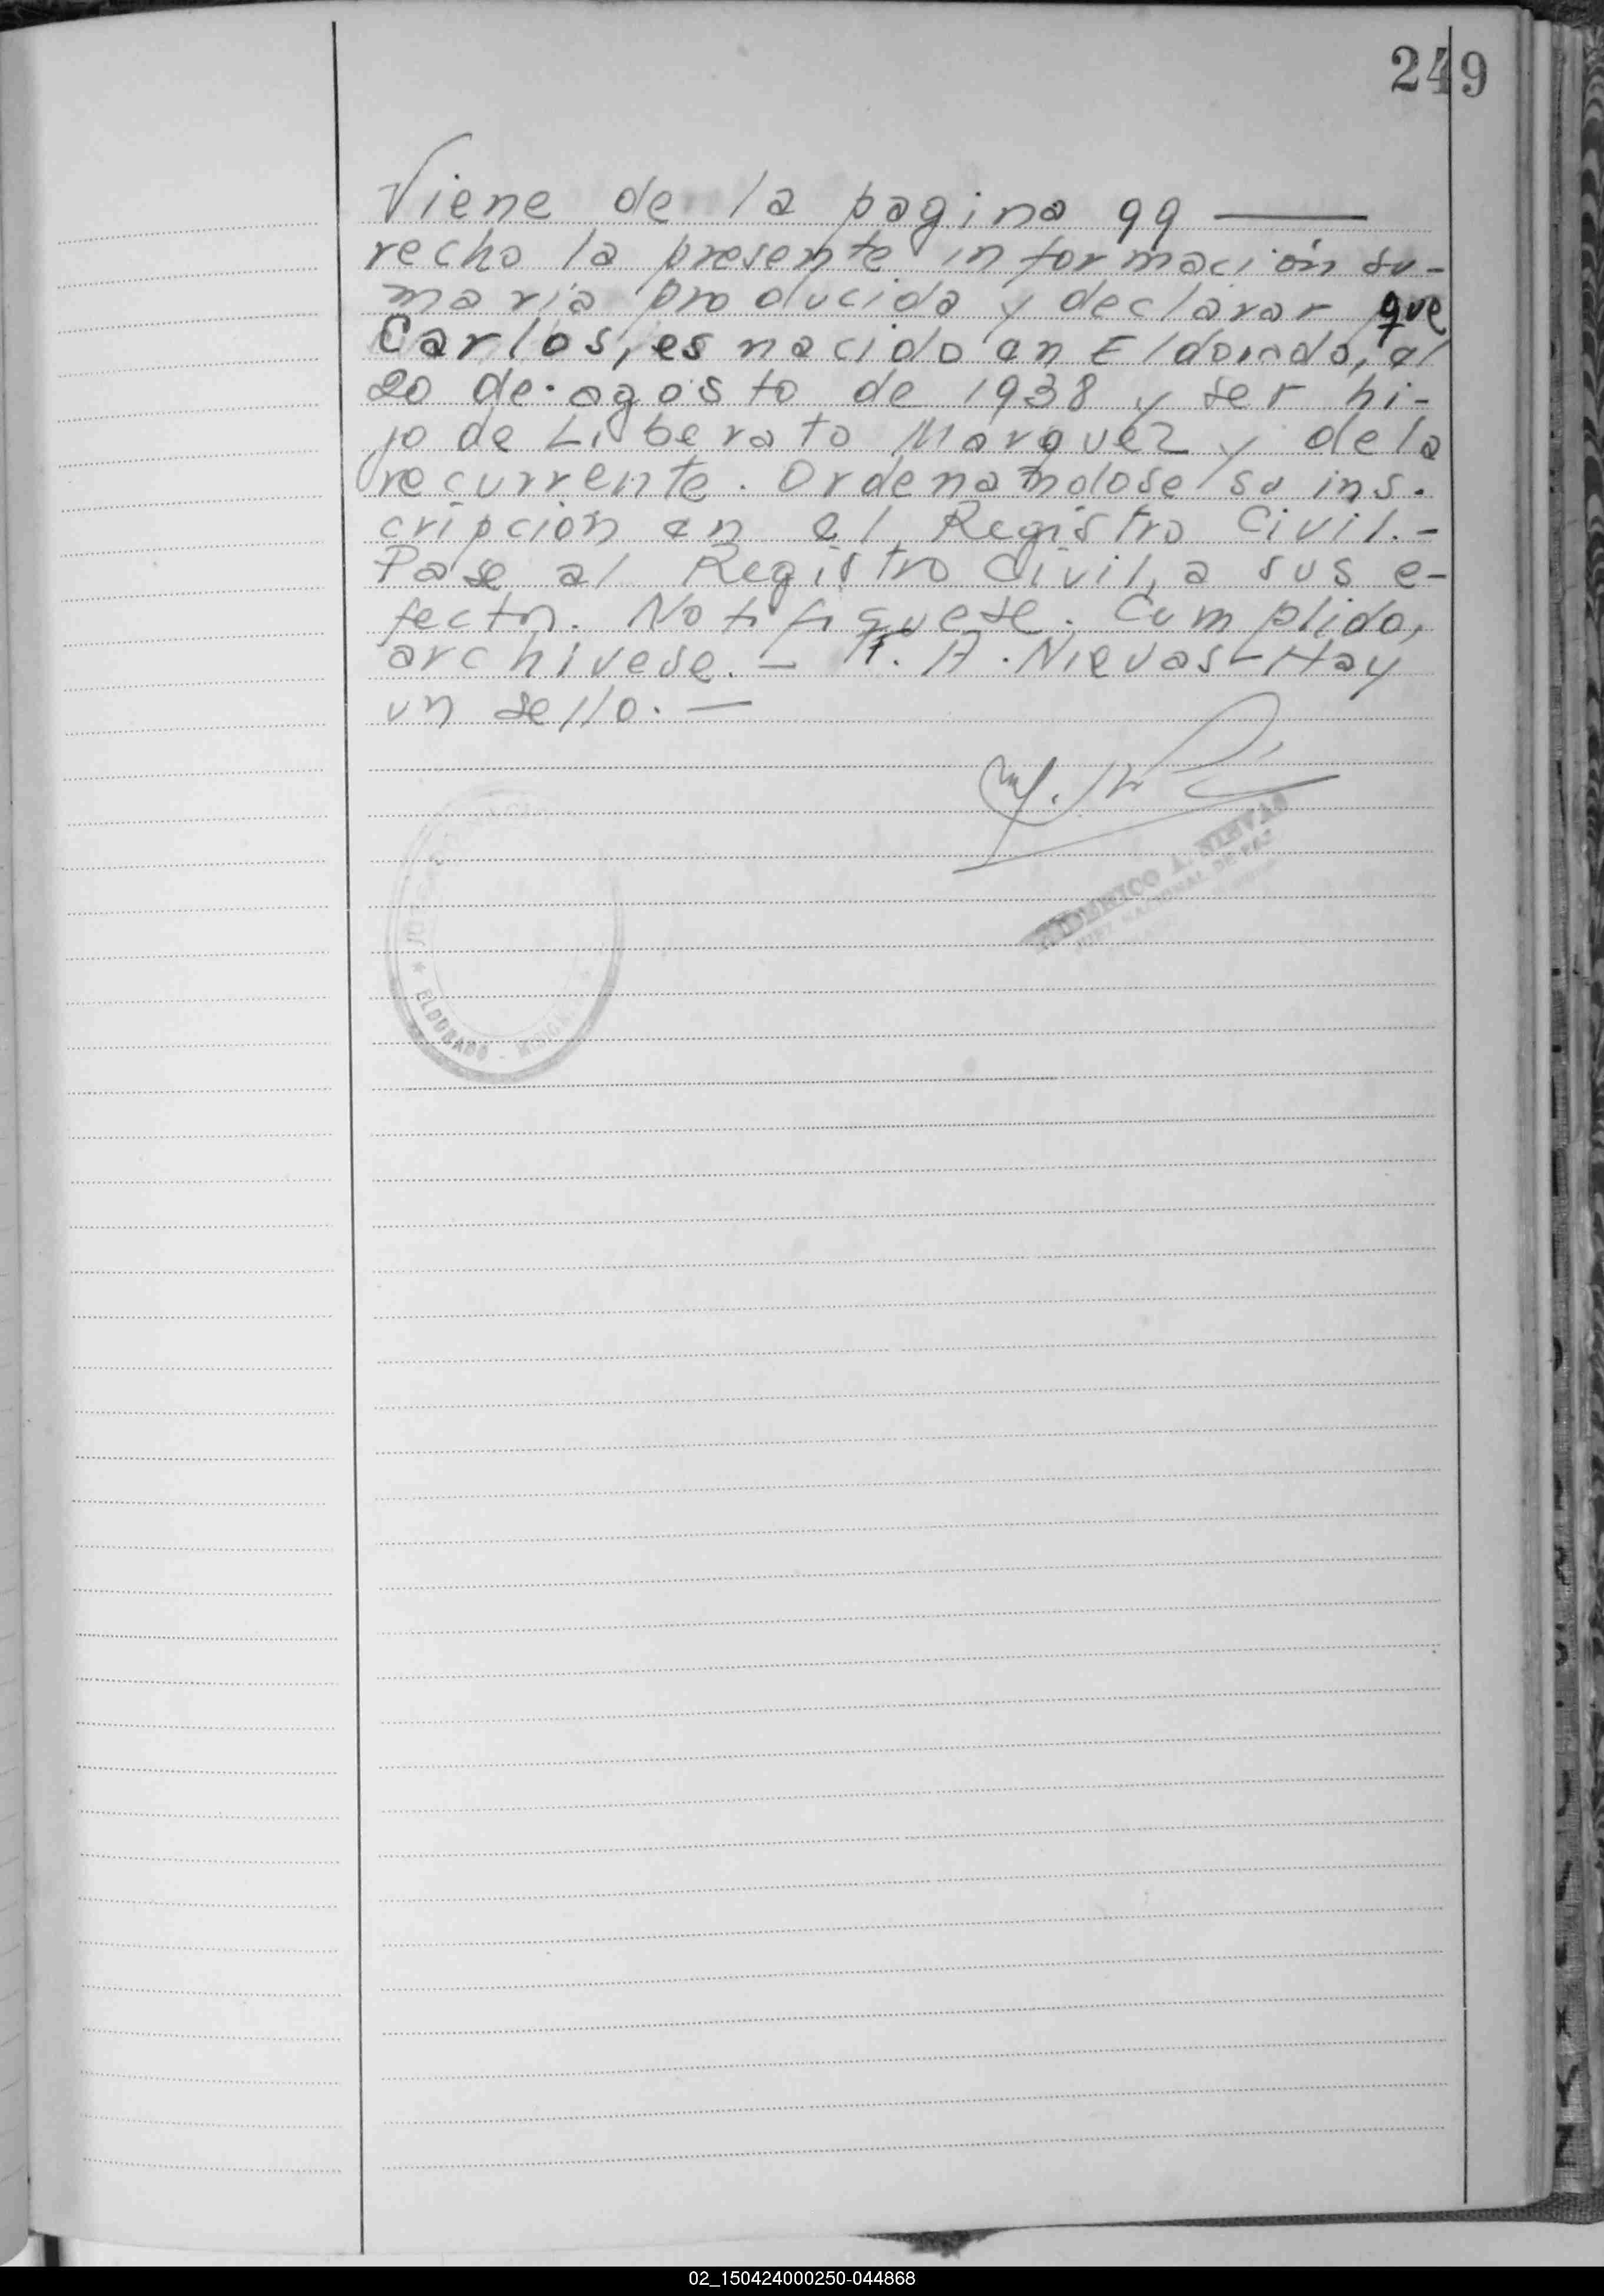 249
Viene de la pagina 99 ———
recho la presente información su-
maria producida y declarar que
Carlos, es nacido en Eldorado, el
20 de agosto de 1938 y ser hi-
jo de Liberato Marquez y de la
recurrente. Ordenandolose su ins-
cripción en el Registro Civil.-
Pase al Registro Civil, a sus e-
fectos. Notifiquese. Cumplido,
archivese. - F. A. Nievas - Hay
un sello. —
FEDERICO A. NIEVAS
JUEZ NACIONAL DE PAZ
★ ELDORADO - MISIONES
02_150424000250-044868